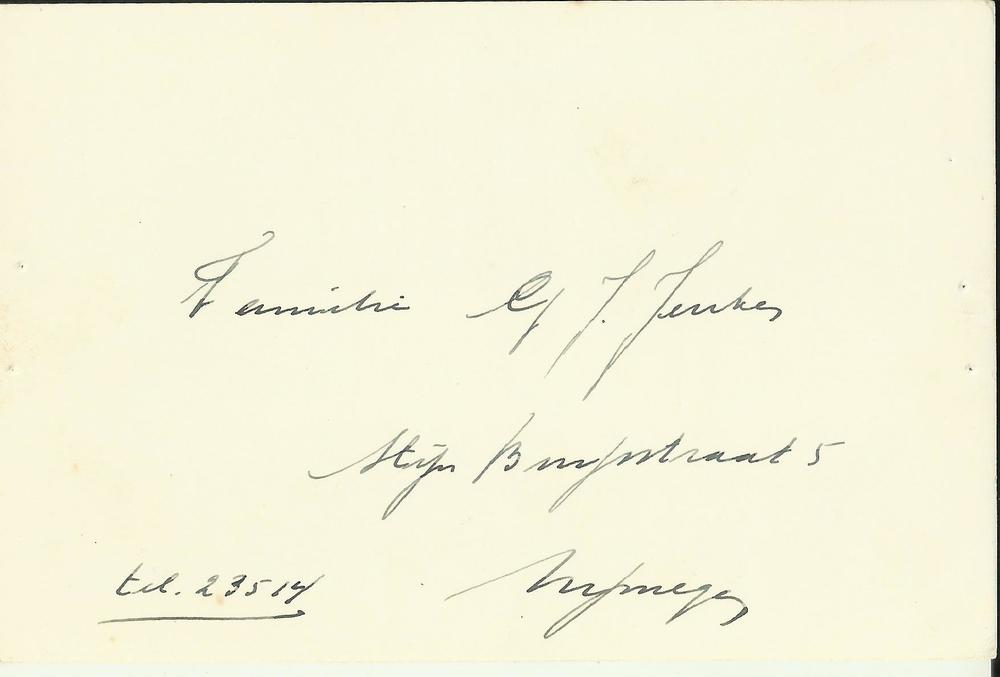 Familie G. J. Jenkes
Stijn Buysstraat 5
Nijmegen
tel. 23514